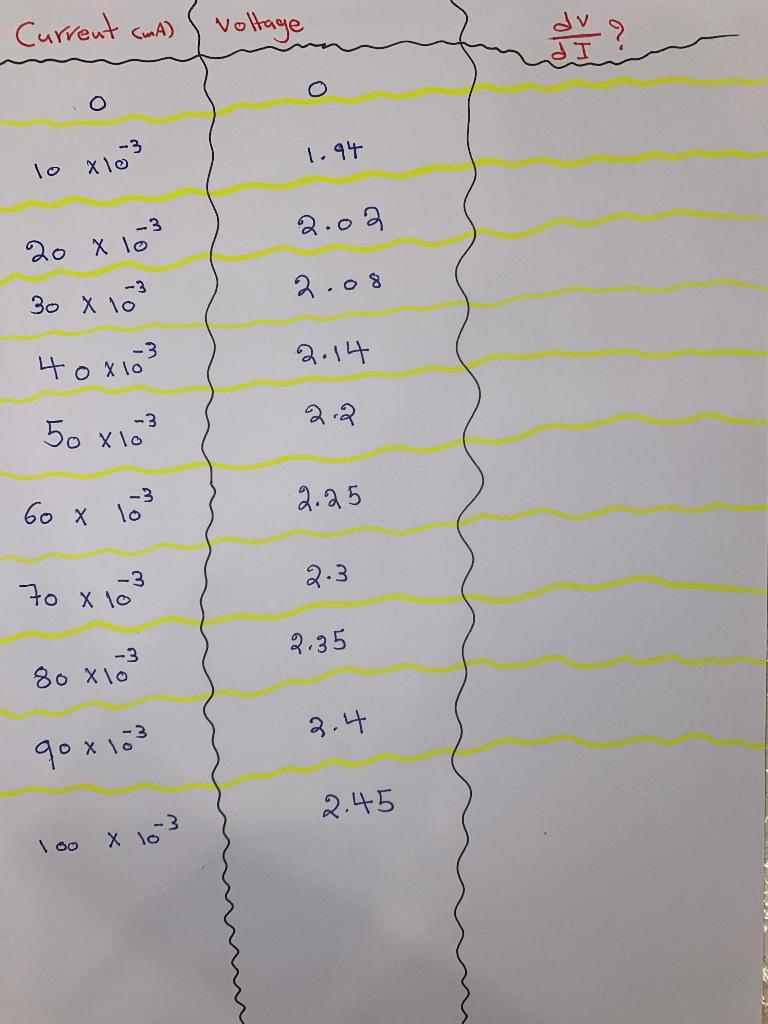 Current (mA) Voltage dv/dI ?
0 0
10 × 10⁻³ 1.94
20 × 10⁻³ 2.02
30 × 10⁻³ 2.08
40 × 10⁻³ 2.14
50 × 10⁻³ 2.2
60 × 10⁻³ 2.25
70 × 10⁻³ 2.3
80 × 10⁻³ 2.35
90 × 10⁻³ 2.4
100 × 10⁻³ 2.45